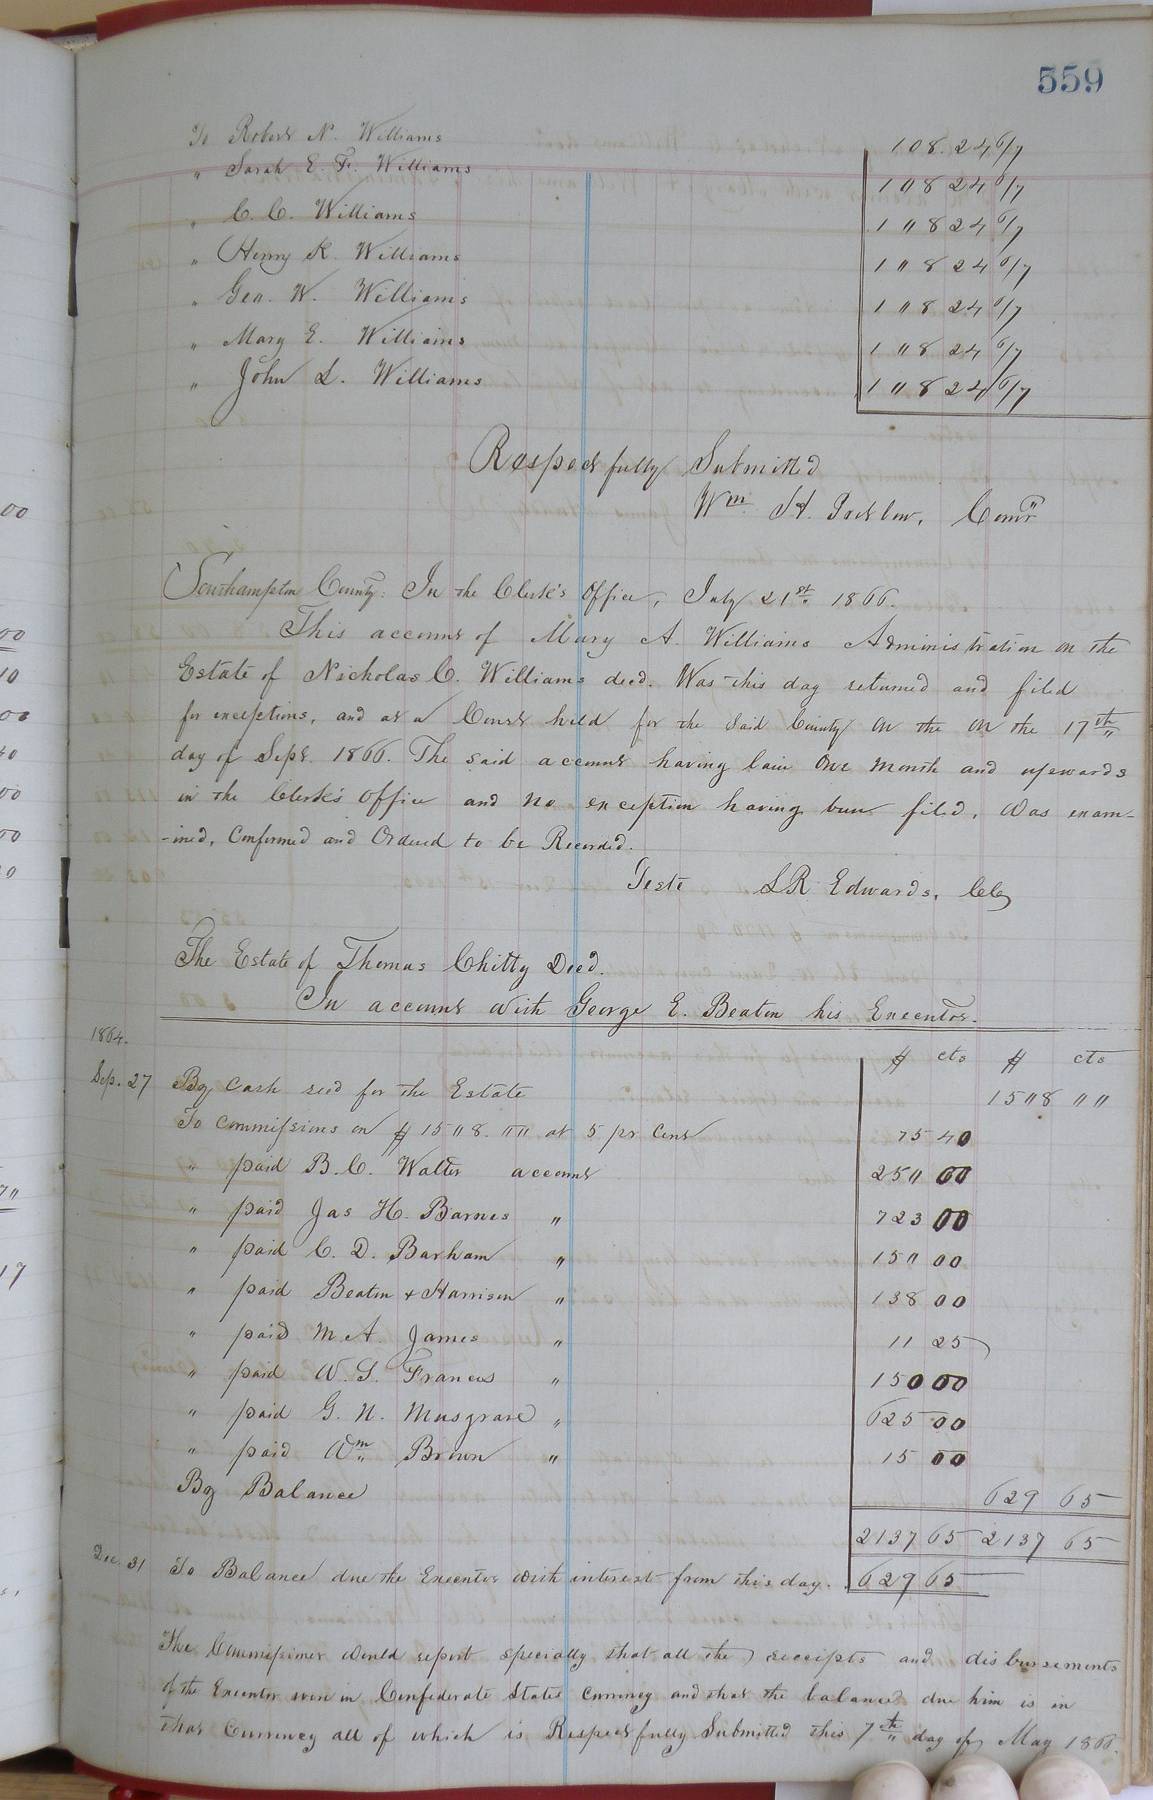 559
To Robert N. Williams 108.24 6/7
" Sarah E. F. Williams 1"8 24 6/7
" C. C. Williams 1"8 24 6/7
" Henry K. Williams 1"8 24 6/7
" Geo. W. Williams 1"8 24 6/7
" Mary E. Williams 1"8 24 6/7
" John L. Williams 1"8 24 6/7
Respectfully Submitted
Wm. H. Comr
Southampton County: In the Clerk's Office, July 21st. 1866.
This account of Mary A. Williams Administration on the
Estate of Nicholas C. Williams decd. Was this day returned and filed
for exceptions, and at a Court held for the said County on the on the 17th
day of Sept. 1866. The said account having lain one month and upwards
in the Clerk's office and no exception having been filed, was exam-
-ined, Confirmed and Ordered to be Recorded.
Teste L R Edwards, Clk
The Estate of Thomas Chitty Decd.
In account with George E. Beaton his Executor.
1864. $ cts $ cts
Sep. 27 By Cash recd for the Estate 15"8 ""
To commissions on $15"8."" at 5 pr Cent 75 40
" paid B. C. Walter account 25" 00
" paid Jas H. Barnes " 723 00
" paid C. D. Barham " 15" 00
" paid Beaton & Harrison " 138 00
" paid M. A. James " 11 25
" paid W. S. Francis " 150 00
" paid G. N. Musgrave " 625 00
" paid Wm Brown " 15 00
By Balance 629 65
2137 65 2137 65
Dec. 31 To Balance due the Executor with interest from this day. 629 65
The Commissioner would report specially that all the receipts and disbursements
of the Executor were in Confederate States currency and that the balance due him is in
that Currency all of which is Respectfully Submitted this 7th day of May 1866.
00
00
10
00
40
00
00
17